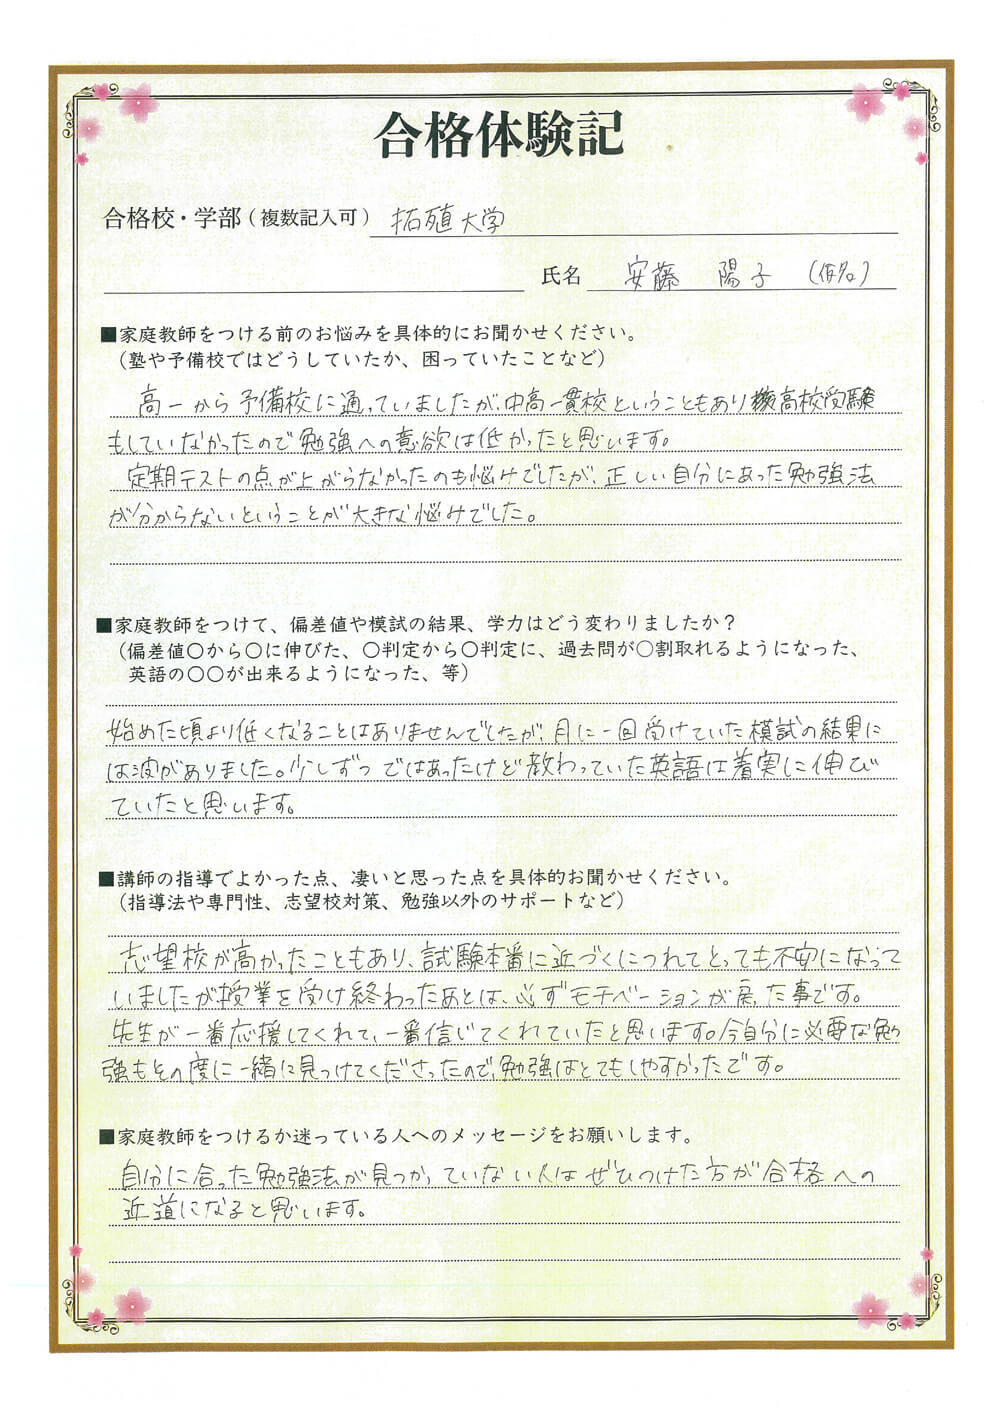 合格体験記
合格校・学部（複数記入可） 拓殖大学
氏名 安藤 陽子 （仮名）
■家庭教師をつける前のお悩みを具体的にお聞かせください。
（塾や予備校ではどうしていたか、困っていたことなど）
高一から予備校に通っていましたが、中高一貫校ということもあり高校受験
もしていなかったので勉強への意欲は低かったと思います。
定期テストの点が上がらなかったのも悩みでしたが、正しい自分にあった勉強法
が分からないということが大きな悩みでした。
■家庭教師をつけて、偏差値や模試の結果、学力はどう変わりましたか？
（偏差値〇から〇に伸びた、〇判定から〇判定に、過去問が〇割取れるようになった、
英語の〇〇が出来るようになった、等）
始めた頃より低くなることはありませんでしたが、月に一回受けていた模試の結果に
は波がありました。少しずつではあったけど教わっていた英語は着実に伸び
ていたと思います。
■講師の指導でよかった点、凄いと思った点を具体的お聞かせください。
（指導法や専門性、志望校対策、勉強以外のサポートなど）
志望校が高かったこともあり、試験本番に近づくにつれてとっても不安になって
いましたが授業を受け終わったあとは、必ずモチベーションが戻った事です。
先生が一番応援してくれて、一番信じてくれていたと思います。今自分に必要な勉
強もその度に一緒に見つけてくださったので、勉強はとてもしやすかったです。
■家庭教師をつけるか迷っている人へのメッセージをお願いします。
自分に合った勉強法が見つかっていない人はぜひつけた方が合格への
近道になると思います。